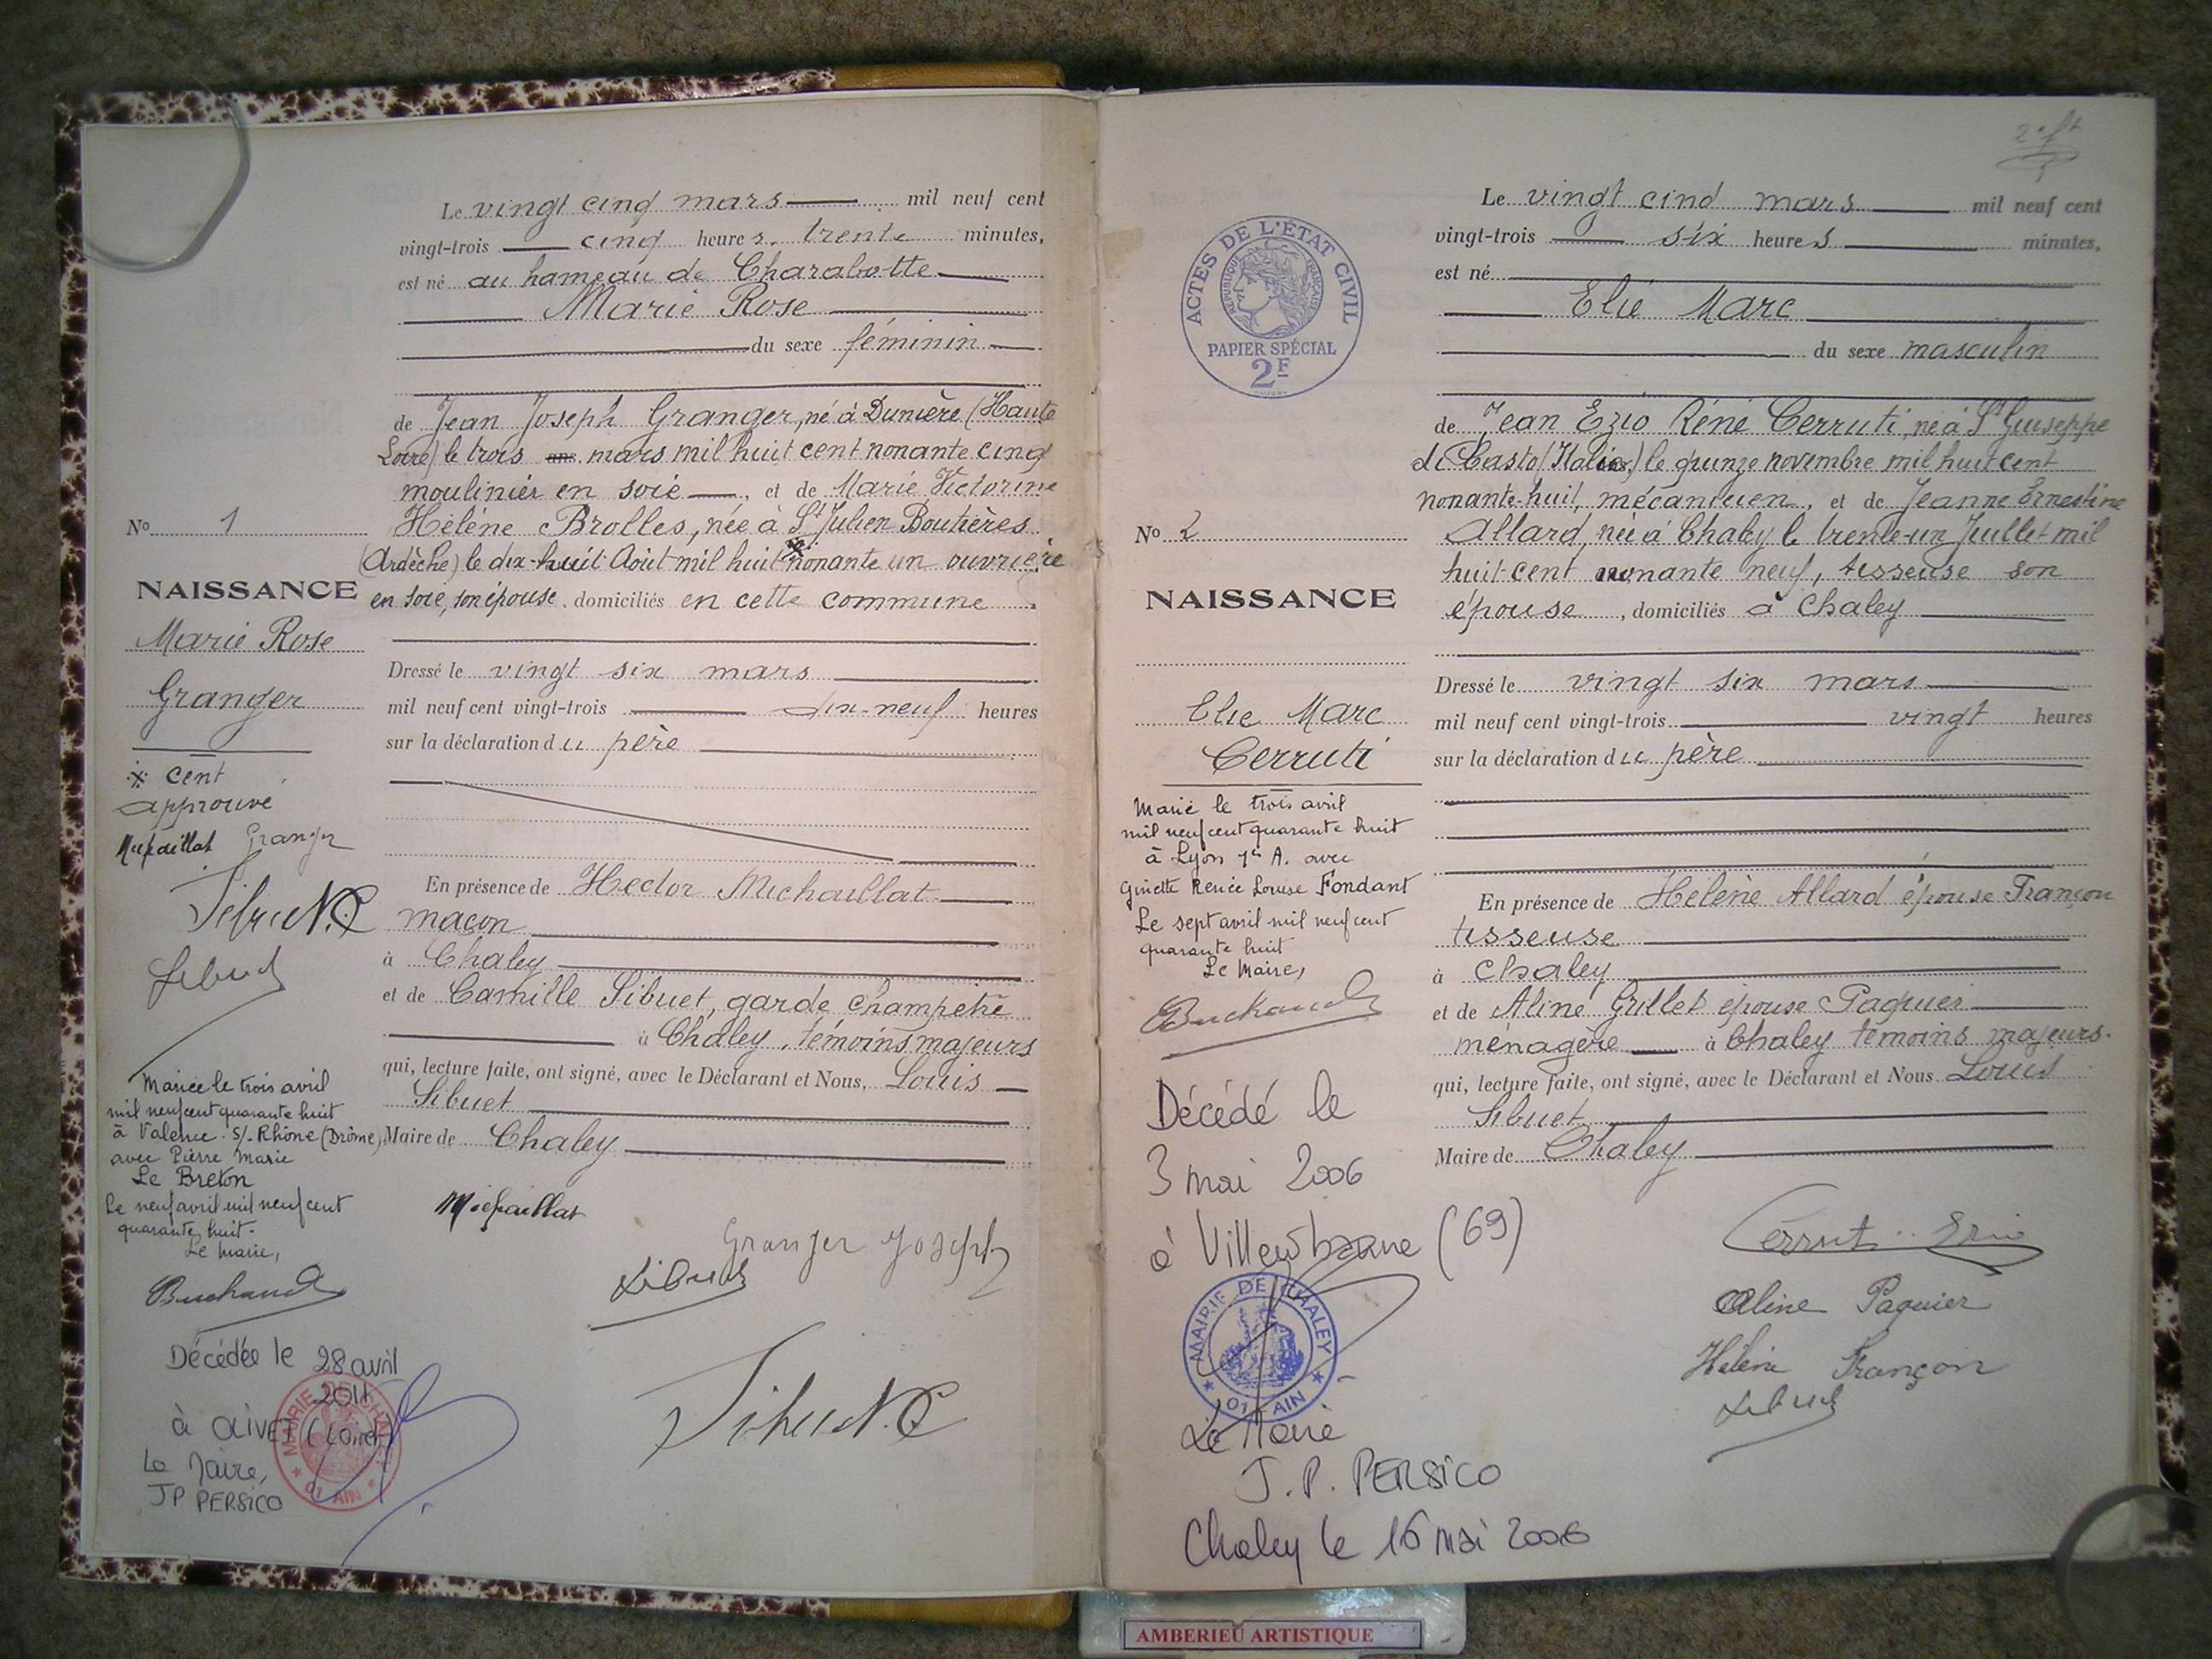 Le vingt cinq mars mil neuf cent
vingt-trois cinq heures. trente minutes,
est né au hameau de Charabotte
Marie Rose
du sexe féminin
de Jean Joseph Granger, né à Dunière (Haute
Loire) le trois ans mars mil huit cent nonante cinq
moulinier en soie, et de Marie Victorine
Hélène Brolles, née à St Julien Boutières
(Ardèche) le dix-huit Août mil huit * nonante un ouvrière
en soie, son épouse, domiciliés en cette commune
No 1
NAISSANCE
Marie Rose
Granger
* cent
approuvé
Michaillat Granger
Sibuet
Mariée le trois avril
mil neuf cent quarante huit
à Valence s/- Rhône (Drôme)
avec Pierre Marie
Le Breton
Le neuf avril mil neuf cent
quarante huit.
Le Maire,
Buchaud
Décédée le 28 avril
2011
à OLIVET (Loiret)
Le Maire,
JP PERSICO
MAIRIE DE CHALEY
01 AIN
Dressé le vingt six mars
mil neuf cent vingt-trois dix-neuf heures
sur la déclaration du père
En présence de Hector Michaillat
maçon
à Chaley
et de Camille Sibuet, garde champetre
à Chaley, témoins majeurs
qui, lecture faite, ont signé, avec le Déclarant et Nous, Louis
Sibuet
Maire de Chaley
Michaillat
Granger Joseph
Sibuet
2F
ACTES DE L'ÉTAT CIVIL
RÉPUBLIQUE FRANÇAISE
PAPIER SPÉCIAL
2F
Le vingt cinq mars mil neuf cent
vingt-trois six heures minutes,
est né
Elie Marc
du sexe masculin
de Jean Ezio Réné Cerruti, né à St Guiseppe
di Casto (Italie) le quinze novembre mil huit cent
nonante-huit, mécanicien, et de Jeanne Ernestine
Allard, née à Chaley le trente-un Juillet mil
huit cent nonante neuf, tisseuse son
épouse, domiciliés à Chaley
No 2
NAISSANCE
Elie Marc
Cerruti
Marié le trois avril
mil neuf cent quarante huit
à Lyon 1er A. avec
Ginette Renée Louise Fondant
Le sept avril mil neuf cent
quarante huit
Le Maire,
Buchaud
Décédé le
3 mai 2006
à Villeurbanne (69)
MAIRIE DE CHALEY
01 AIN
Le Maire
J.P. PERSICO
Chaley le 16 mai 2006
Dressé le vingt six mars
mil neuf cent vingt-trois vingt heures
sur la déclaration du père
En présence de Hélène Allard épouse Françon
tisseuse
à Chaley
et de Aline Grillet épouse Paquier
ménagère à Chaley témoins majeurs.
qui, lecture faite, ont signé, avec le Déclarant et Nous Louis
Sibuet
Maire de Chaley
Cerruti Ezio
Aline Paquier
Hélène Françon
Sibuet
AMBERIEU ARTISTIQUE